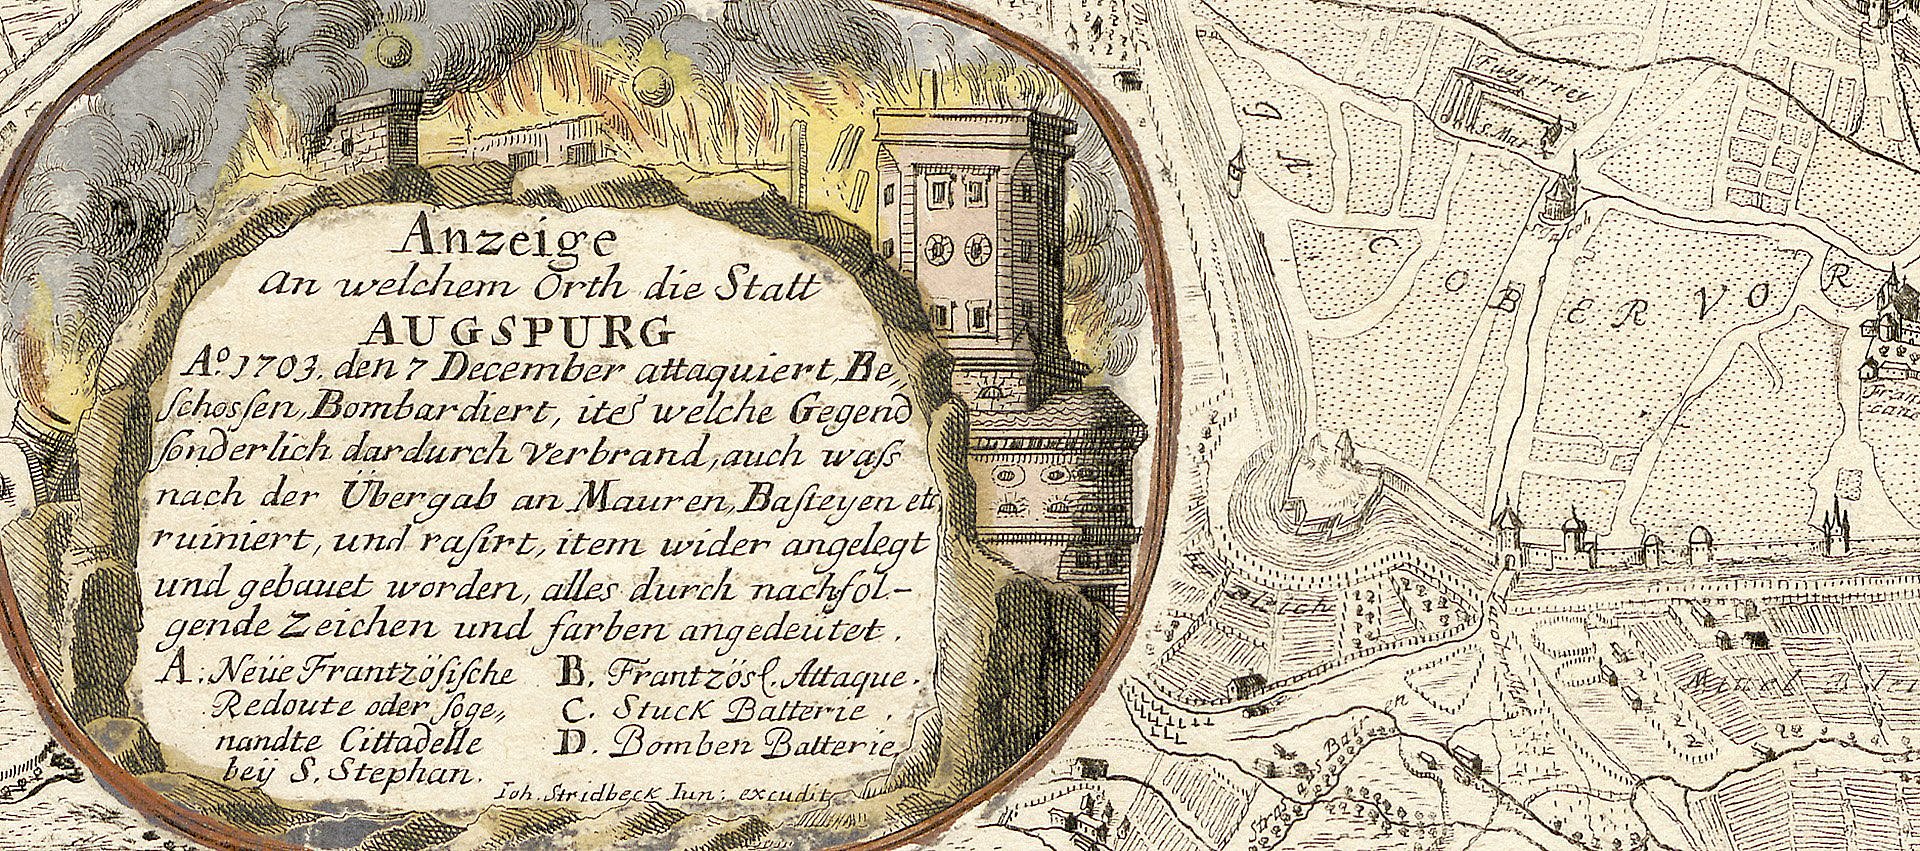 Anzeige
an welchem Orth die Statt
AUGSPURG
Aº. 1703. den 7 December attaquiert, Be„
schossen, Bombardiert, ite͂ welche Gegend
sonderlich dardurch verbrand, auch wass
nach der Übergab an Mauren, Basteyen etc
ruiniert, und rasirt, item wider angelegt
und gebauet worden, alles durch nachfol-
gende Zeichen und farben angedeütet.
A. Neüe Frantzösische
Redoute oder soge„
nandte Cittadelle
beÿ S. Stephan.
B. Frantzösl. Attaque.
C. Stuck Batterie.
D. Bomben Batterie,
Ioh. Stridbeck Iun: excudit
Fuggerey
S. Mar
IACOBER VOR
Fran
cane
Bleich